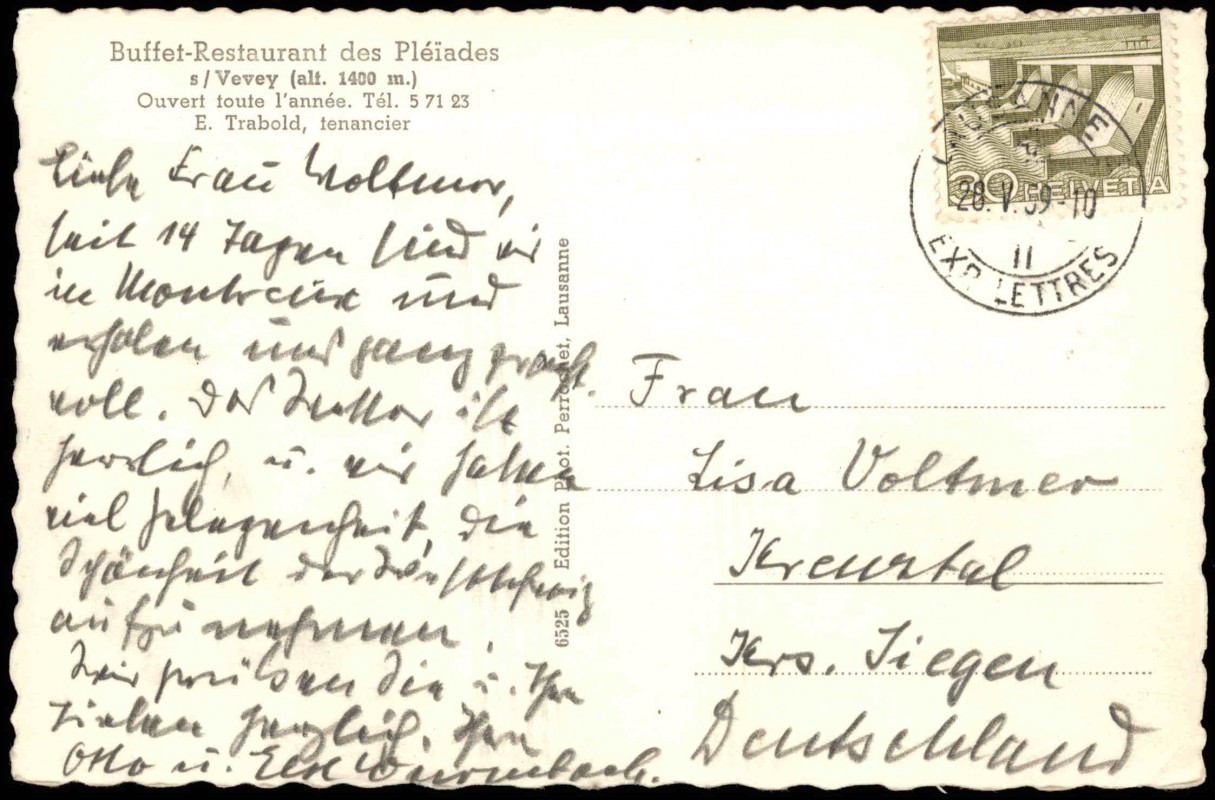 Buffet-Restaurant des Pléïades
s/Vevey (alt. 1400 m.)
Ouvert toute l'année. Tél. 5 71 23
E. Trabold, tenancier
Liebe Frau Voltmer,
seit 14 Tagen sind wir
in Montreux und
erholen uns ganz pracht-
voll. Das Wetter ist
herrlich, u. wir haben
viel Gelegenheit, die
Schönheit der Westschweiz
aufzunehmen.
Wir grüßen Sie u. Ihre
Lieben herzlich. Ihre
Otto u. Else
6525 Edition Phot. Perrochet, Lausanne
LAUSANNE
28.V.59-10
II
EXP. LETTRES
20 HELVETIA
Frau
Lisa Voltmer
Kreuztal
Krs. Siegen
Deutschland